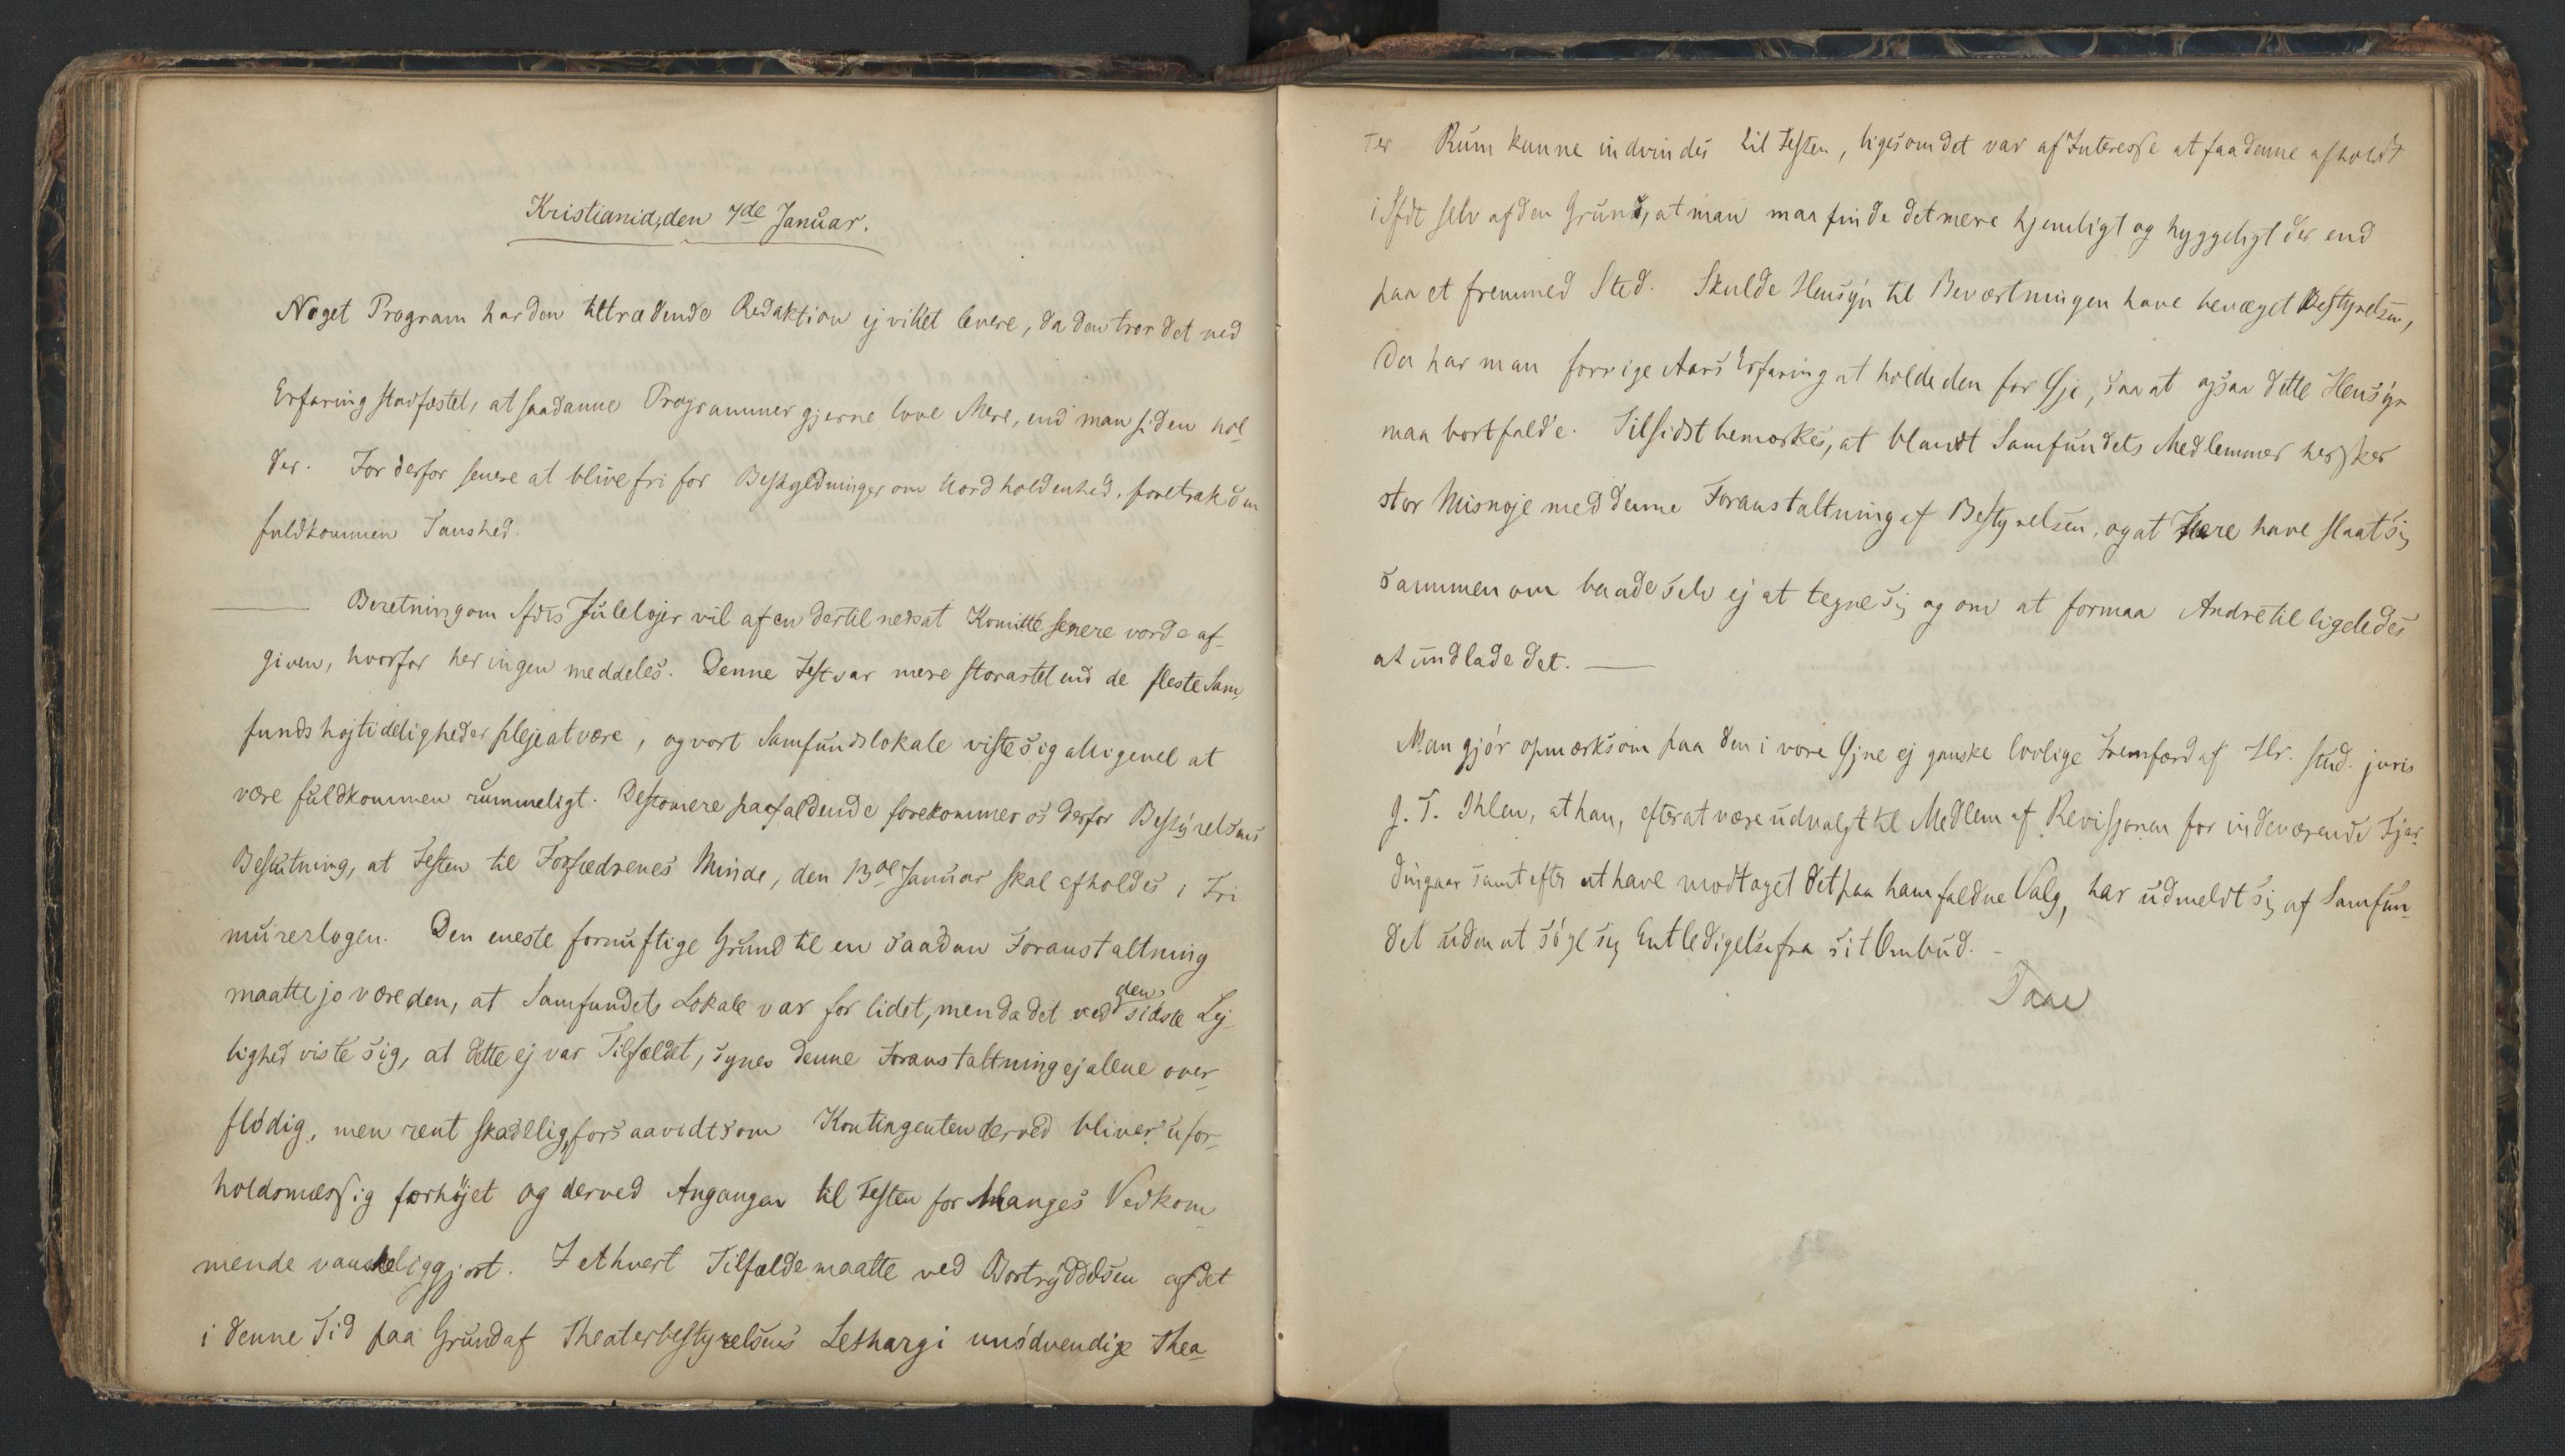 Kristiania, den 7de Januar.
Noget Program har den tiltrædende Redaktion ej villet levere, da den tror det ved
Erfaring stadfæstet, at saadanne Programmer gjerne love Mere, end man siden hol-
der. For derfor senere at blive fri for Beskyldninger om Uordholdenhed, foretrak den
fuldkommen Taushed.
Beretning om Sfdts Juleløjer vil af en dertil nedsat Komitte senere vorde af-
given, hvorfor her ingen meddeles. Denne Fest var mere storartet end de fleste Sam-
fundshøjtideligheder pleje at være, og vort Samfundslokale viste sig alligevel at
være fuldkommen rummeligt. Destomere paafaldende forekommer os derfor Bestyrelsens
Beslutning, at Festen til Forfædrenes Minde, den 13de Januar skal afholdes i Fri
murerlogen. Den eneste fornuftige Grund til en saadan Foranstaltning
maatte jo være den, at Samfundets Lokale var for lidet, men da det ved den sidste Lej-
lighed viste sig, at dette ej var Tilfældet, synes denne Foranstaltning ej alene over-
flødig, men rent skadelig, forsaavidtsom Kontingenten derved bliver ufor-
holdsmæssig forhøjet og derved Angangen til Festen for Manges Vedkom-
mende vanskeliggjort. I ethvert Tilfælde maatte ved Bortryddelsen af det
i denne Tid paa Grund af Theaterbestyrelsens Lethargi unødvendige Thea-
ter Rum kunne indvindes til Festen, ligesom det var af Interesse at faa denne afholdt
i Sfdt selv af den Grund, at man maa finde det mere hjemligt og hyggeligt der end
paa et fremmed Sted. Skulde Hensyn til Beværtningen have bevæget Bestyrelsen,
da har man forrige Aars Erfaring at holde den for Øje, saa at ogsaa dette Hensyn
maa bortfalde. Tilsidst bemærkes, at blandt Samfundets Medlemmer hersker
stor Misnøje med denne Foranstaltning af Bestyrelsen, og at Flere have slaat sig
sammen om baade selv ej at tegne sig og om at formaa Andre til ligeledes
at undlade det.
Man gjør opmærksom paa den i vore Øjne ej ganske lovlige Fremfærd af Hr. stud. juris
J. T. Ihlen, at han, efter at være udvalgt til Medlem af Revisjonen for indeværende Fjer-
dingaar samt efter at have modtaget det paa ham faldne Valg, har udmeldt sig af Samfun-
det uden at søge sig Entledigelse fra sit Ombud.